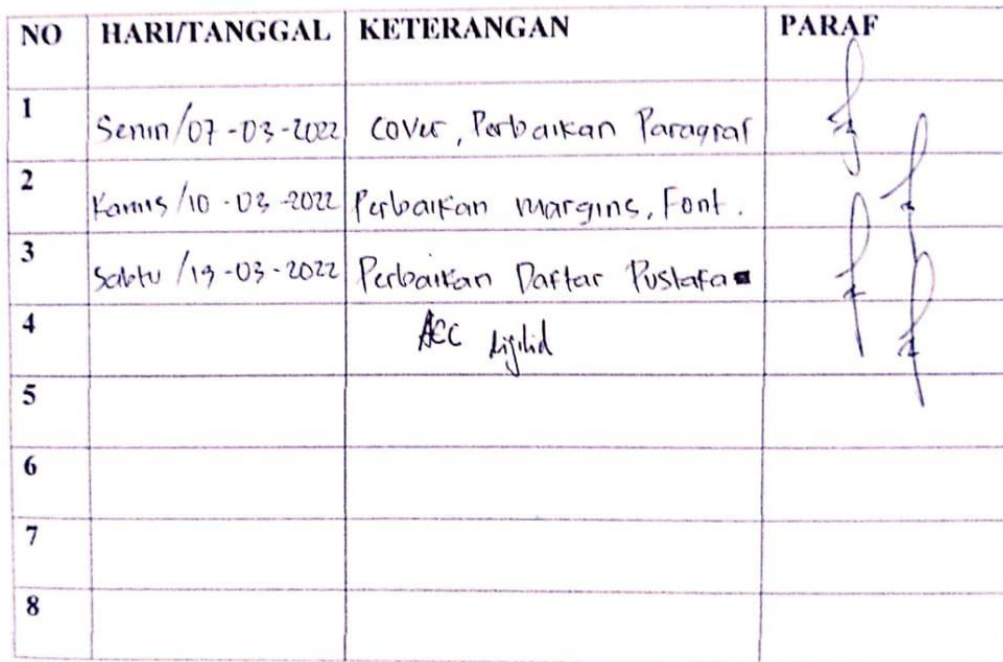 NO HARI/TANGGAL KETERANGAN PARAF
1 Senin/07-03-2022 Cover, Perbaikan Paragraf
2 Kamis/10-03-2022 Perbaikan margins, Font.
3 Sabtu/19-03-2022 Perbaikan Daftar Pustaka
4 ACC dijilid
5
6
7
8